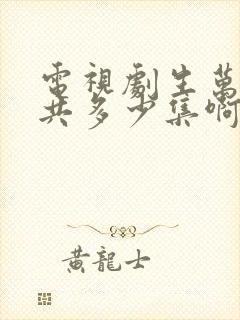 電視劇生萬
共多少集啊
黃龍士